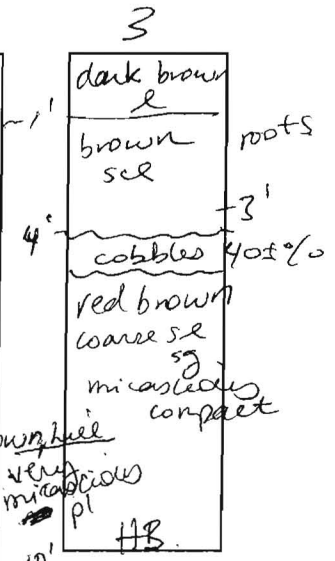 3
dark brown
l
1'
brown
scl
roots
3'
4'
cobbles 40±%
red brown
coarse sl
sg
micaceous
compact
very
micacious
pl
HB